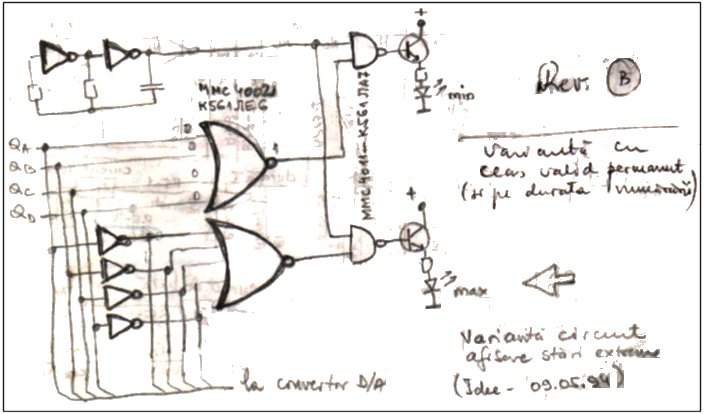 +
MMC 4002
K561ЛЕ6
MMC 4011 - K561ЛА7
min
Rev. B
QA
QB
QC
QD
0
0
0
0
1
Variantă cu
ceas valid permanent
(și pe durata numărării)
+
max
Variantă circuit
afișare stări extreme
(Idee - 09.05.94)
la convertor D/A